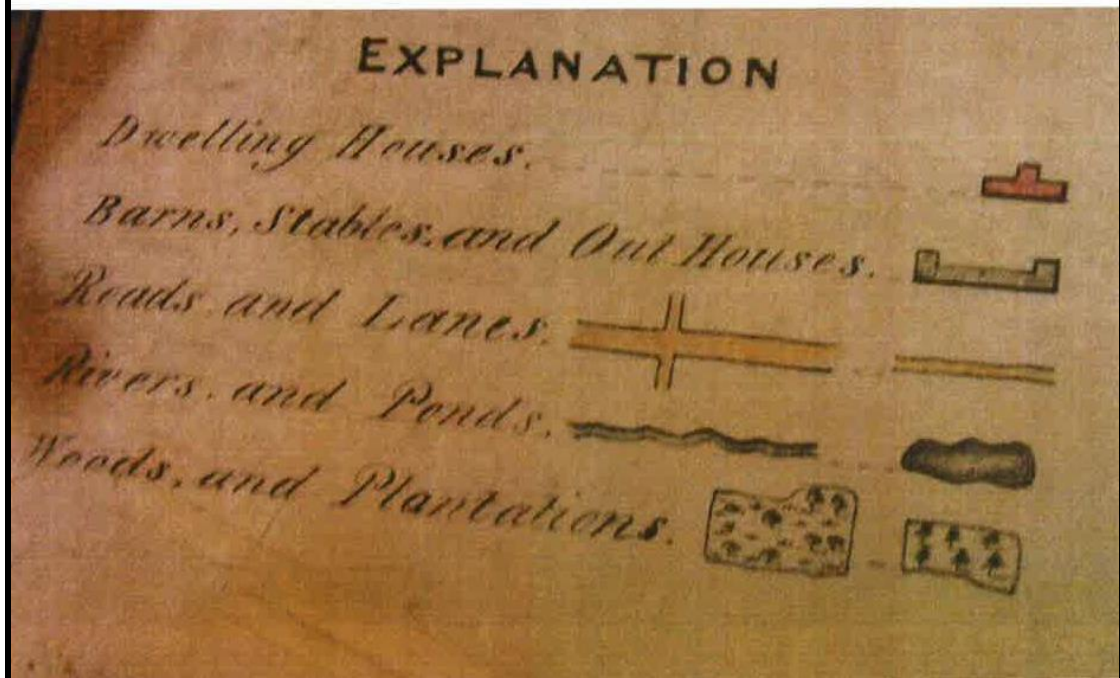 EXPLANATION
Dwelling Houses.
Barns, Stables, and Out Houses.
Roads, and Lanes.
Rivers, and Ponds.
Woods, and Plantations.